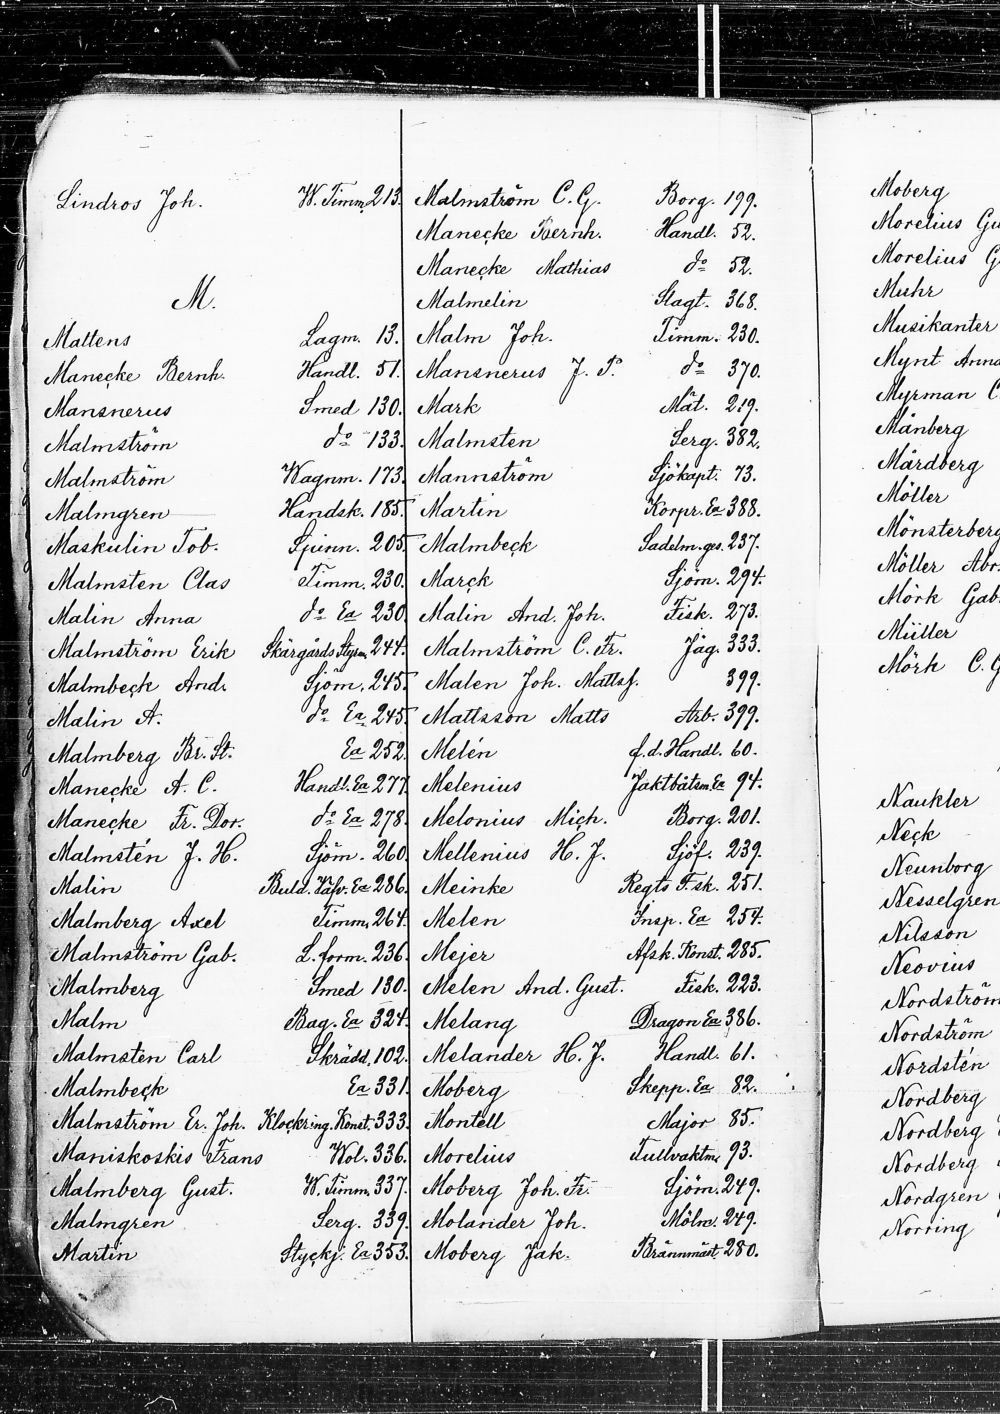 Lindros Joh. W. Timm. 213.
M.
Maltens Lagm. 13.
Manecke Bernh. Handl. 51.
Mansnerus Smed 130.
Malmström do 133.
Malmström Wagnm. 173.
Malmgren Handsk. 185.
Maskulin Tob. Spinn. 205.
Malmsten Clas Timm. 230.
Malin Anna do Ea 230.
Malmström Erik Skärgårds Styrm. 244.
Malmbeck And. Sjöm. 245.
Malin A. do Ea 245.
Malmberg Br. St. Ea 252.
Manecke A. C. Handl. Ea 277.
Manecke Fr. Dor. do Ea 278.
Malmstén J. H. Sjöm. 260.
Malin Ea 286.
Malmberg Axel Timm. 264.
Malmström Gab. L. form. 236.
Malmberg Smed 130.
Malm Bag. Ea 324.
Malmstén Carl Skrädd. 102.
Malmbeck Ea 331.
Malmström Er. Joh. Klockring. Konst. 333.
Maniskoskis Frans Wol. 336.
Malmberg Gust. W. Timm. 337.
Malmgren Serg. 339.
Martin Styckj. Ea 353.
Malmström C. G. Borg. 199.
Manecke Bernh. Handl. 52.
Manecke Mathias do 52.
Malmelin Slagt. 368.
Malm Joh. Timm. 230.
Mansnerus J. P. do 370.
Mark Mät. 219.
Malmsten Serg. 382.
Mannström Sjökapt. 73.
Martin Korpr. Ea 388.
Malmbeck Sadelm. ges. 237.
Marck Sjöm. 294.
Malin And. Joh. Fisk. 273.
Malmström C. Fr. Jäg. 333.
Malen Joh. Mattsf. 399.
Mattsson Matts Arb. 399.
Melén f. d. Handl. 60.
Melenius Jaktbåtsm. Ea 94.
Melonius Mich. Borg. 201.
Mellenius H. J. Sjöf. 239.
Meinke Regts F.sk. 251.
Melen Insp. Ea 254.
Mejer Afsk. Konst. 285.
Melen And. Gust. Fisk. 223.
Melang Dragon Ea 386.
Melander H. J. Handl. 61.
Moberg Skepp. Ea 82.
Montell Major 85.
Morelius Tullvaktm. 93.
Moberg Joh. Fr. Sjöm. 249.
Molander Joh. Mölm. 249.
Moberg Jak. Brännmäst. 280.
Moberg
Morelius Gu
Morelius G
Muhr
Musikanter
Mynt Anna
Myrman C.
Månberg
Mårdberg
Möller
Mönsterberg
Möller Abr.
Mörk Gab.
Müller
Mörk C. G
Naukler
Neck
Neunborg
Nesselgren
Nilsson
Neovius
Nordström
Nordström
Nordstén
Nordberg
Nordberg
Nordberg
Nordgren
Norring